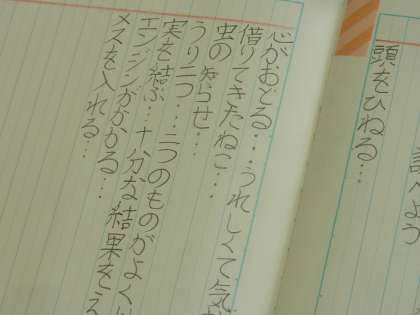 調べよう
頭をひねる…
心がおどる…うれしくて気
借りてきたねこ…
虫の知らせ…
うり二つ…二つのものがよく
実を結ぶ…十分な結果をえ
エンジンがかかる…
メスを入れる…